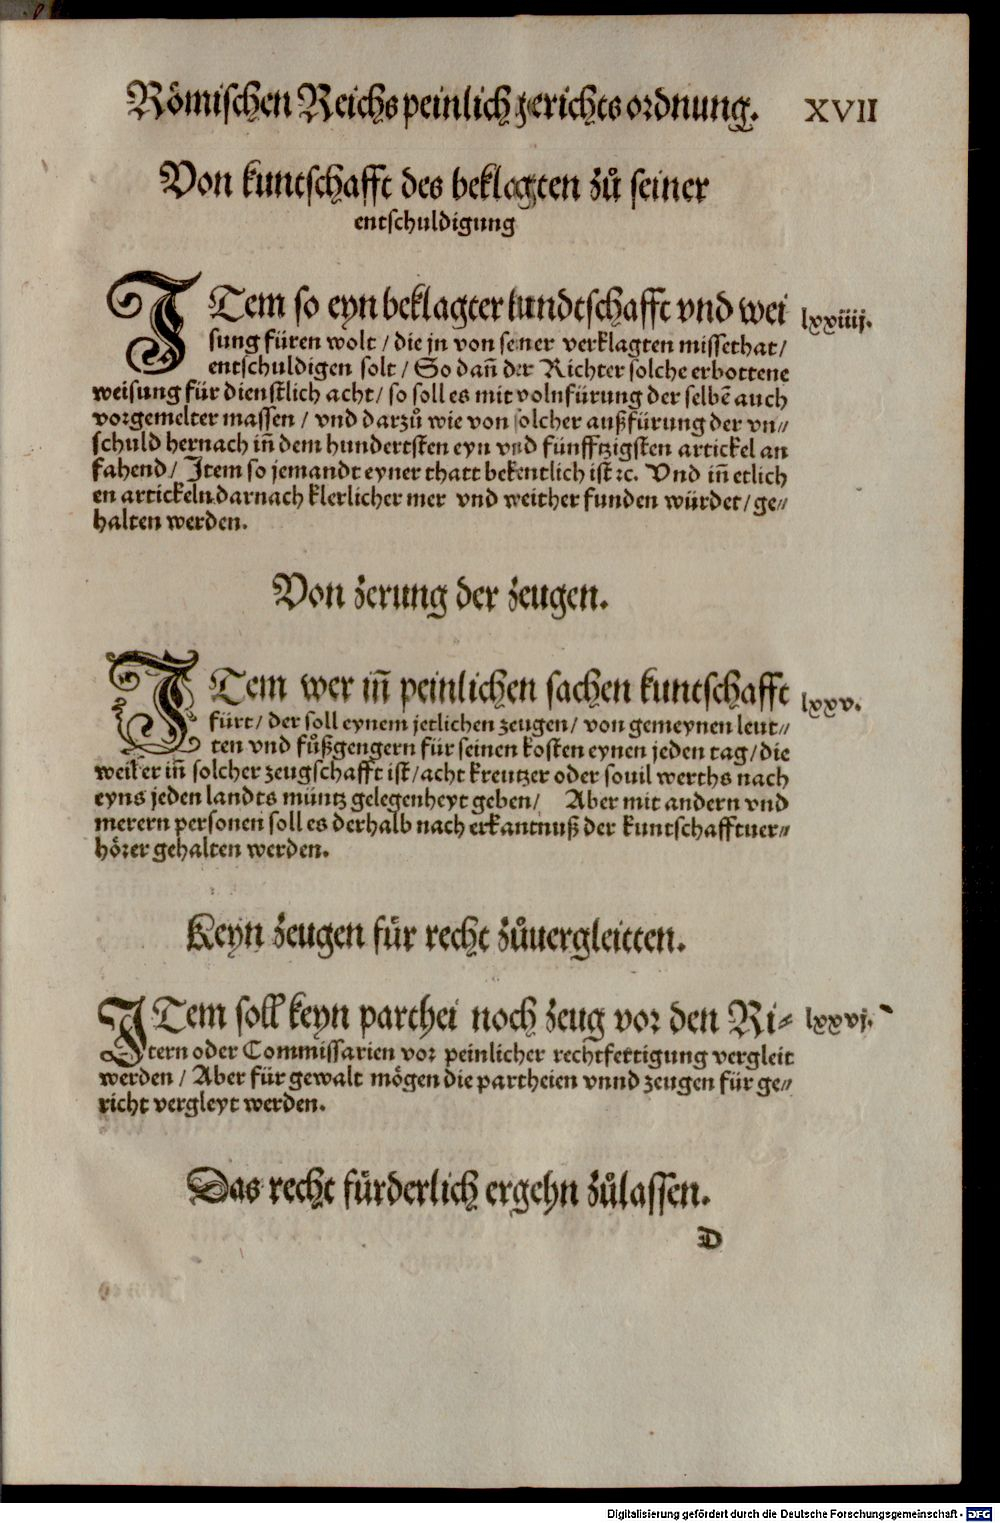 Römischen Reichs peinlich gerichts ordnung. XVII
Von kuntschafft des beklagten zů seiner
entschuldigung
ITem so eyn beklagter kundtschafft vnd wei lxxiiij.
sung füren wolt / die jn von seiner verklagten missethat /
entschuldigen solt / So dañ der Richter solche erbottene
weisung für dienstlich acht / so soll es mit volnfürung der selbẽ auch
vorgemelter massen / vnd darzů wie von solcher außfürung der vn⸗
schuld hernach iñ dem hundertsten eyn vnd fünfftzigsten artickel an
fahend / Item so jemandt eyner thatt bekentlich ist ꝛc. Vnd iñ etlich
en artickeln darnach klerlicher mer vnd weither funden würdet / ge⸗
halten werden.
Von zerung der zeugen.
ITem wer iñ peinlichen sachen kuntschafft lxxv.
fürt / der soll eynem jetlichen zeugen / von gemeynen leut⸗
ten vnd fůßgengern für seinen kosten eynen jeden tag / die
weil er iñ solcher zeugschafft ist / acht kreutzer oder souil werths nach
eyns jeden landts müntz gelegenheyt geben / Aber mit andern vnd
merern personen soll es derhalb nach erkantnuß der kuntschafftuer⸗
hörer gehalten werden.
Keyn zeugen für recht zůuergleitten.
ITem soll keyn parthei noch zeug vor den Ri⸗ lxxvj.
tern oder Commissarien vor peinlicher rechtfertigung vergleit
werden / Aber für gewalt mögen die partheien vnnd zeugen für ge⸗
richt vergleyt werden.
Das recht fürderlich ergehn zůlassen.
D
Digitalisierung gefördert durch die Deutsche Forschungsgemeinschaft - DFG